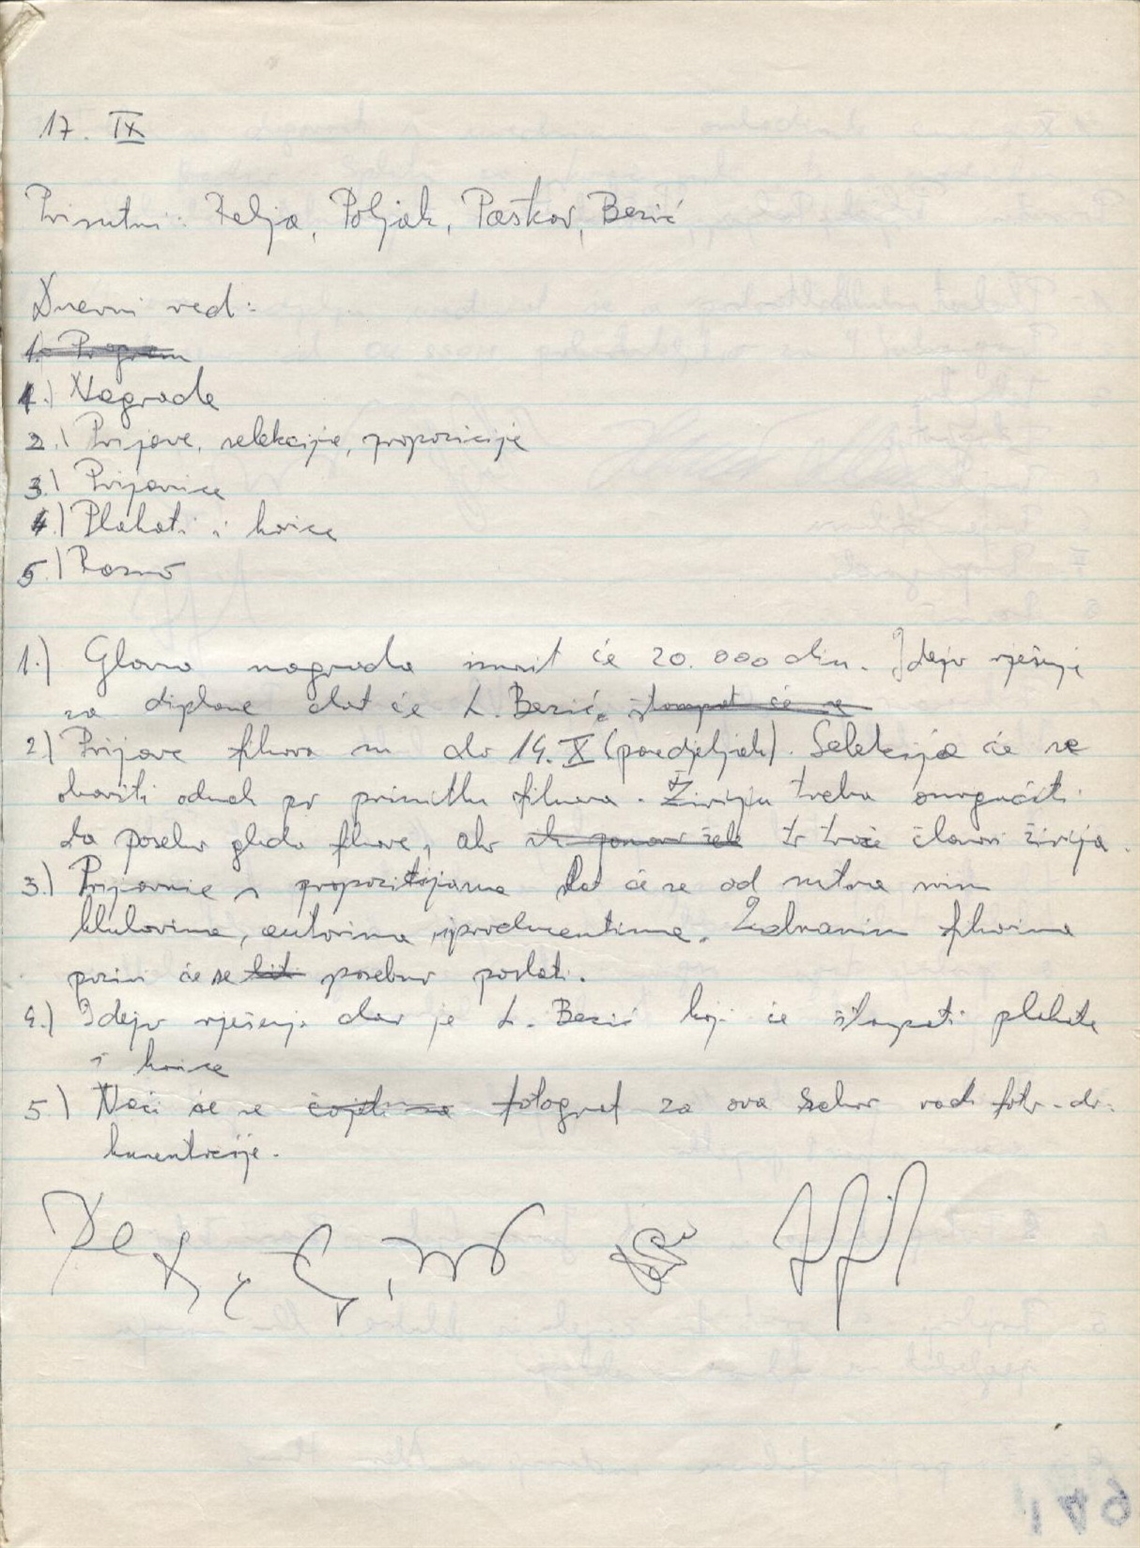 17. IX
Prisutni: Relja, Poljak, Paskov, Bezić
Dnevni red:
1. Program
1.) Nagrade
2.) Prijave, selekcije, propozicije
3.) Prijavnice
4.) Plakati i korice
5.) Razno
1.) Glavna nagrada iznosit će 20.000 din. Idejno rješenje
za diplome dat će L. Bezić. štampat će se
2) Prijave filmova su do 14. X (ponedjeljak). Selekcija će se
obaviti odmah po primitku filmova. Žiriju treba omogućiti
da posebno gleda filmove, ako to traže članovi žirija.
3.) Prijavnice s propozicijama slat će se od sutra svim
klubovima, autorima, i producentima. Zadnanim filmovima
poziv će se posebno poslati.
4.) Idejno rješenje dao je L. Bezić koji će štampati plakate
i korice
5.) Naći će se fotograf za ova radi foto-do-
kumentacije.
149